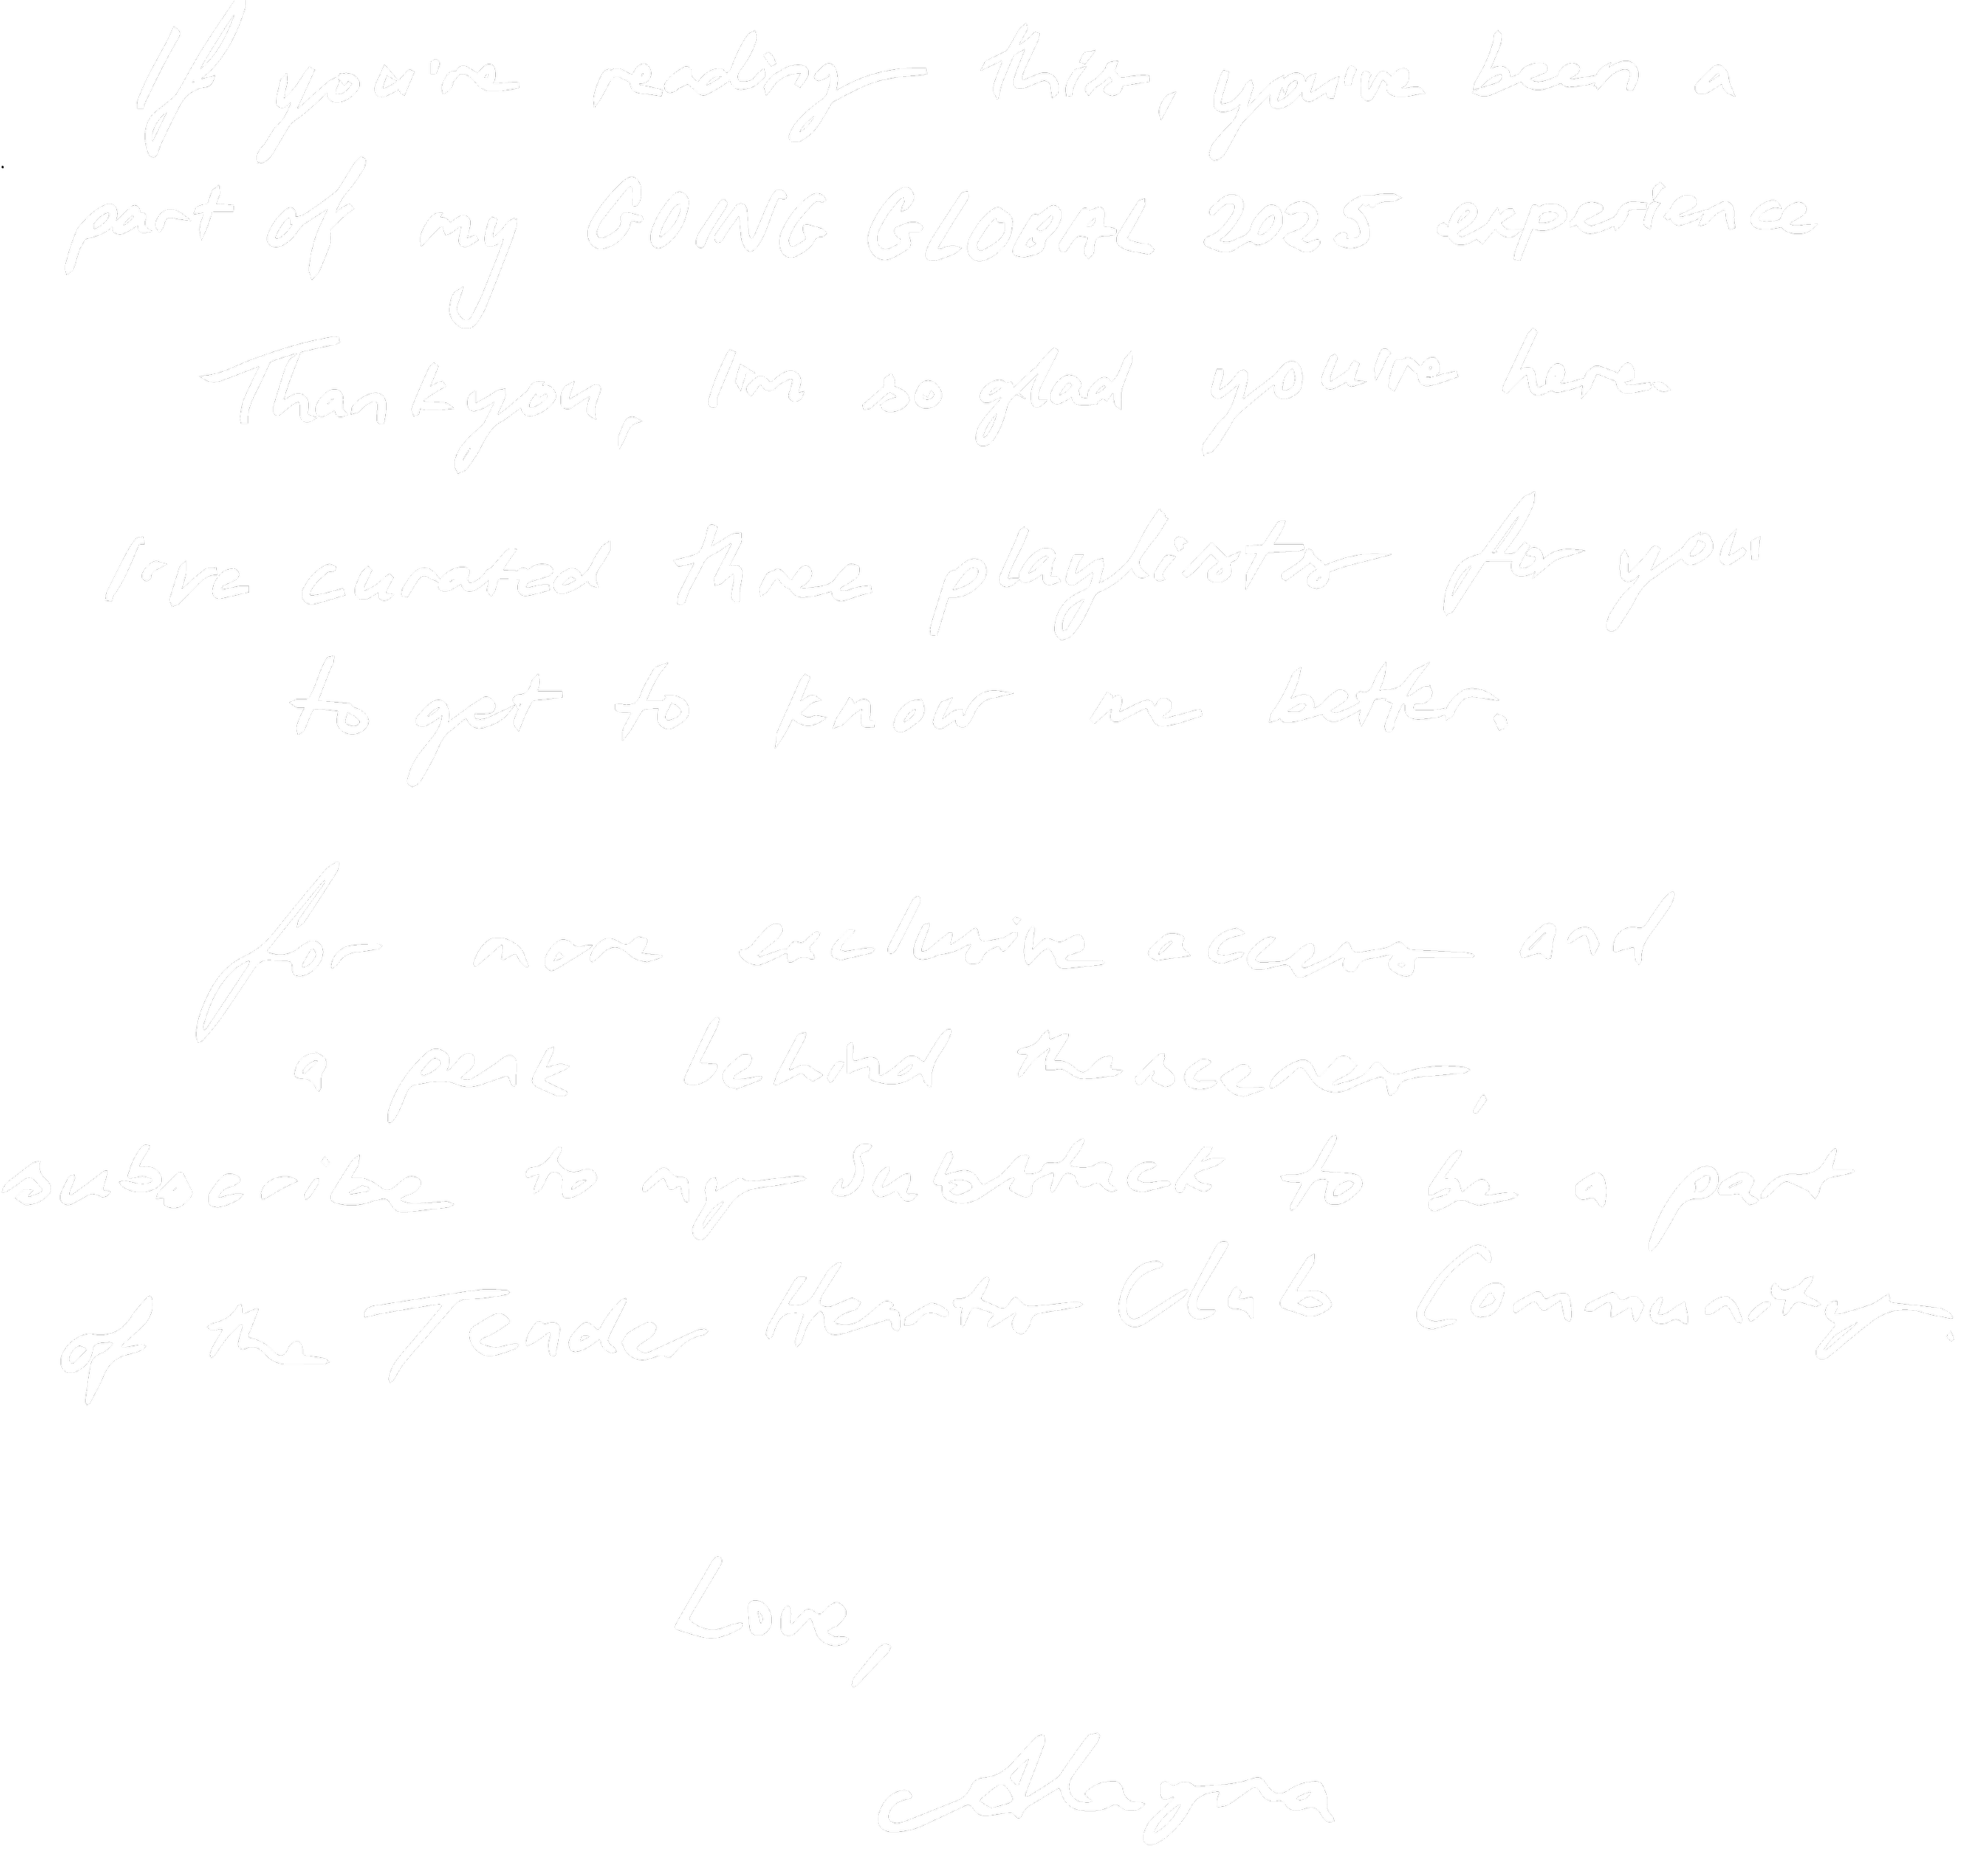 If you're reading this, you've been a
part of my GOING GLOBAL 2025 experience
Thank you, I'm so glad you're here.
I've curated three playlists for you
to get to know me better.
for more exclusive access and
a peek behind the scenes,
subscribe to my substack to be a part
of the Tender Hearts Club Community.
Love,